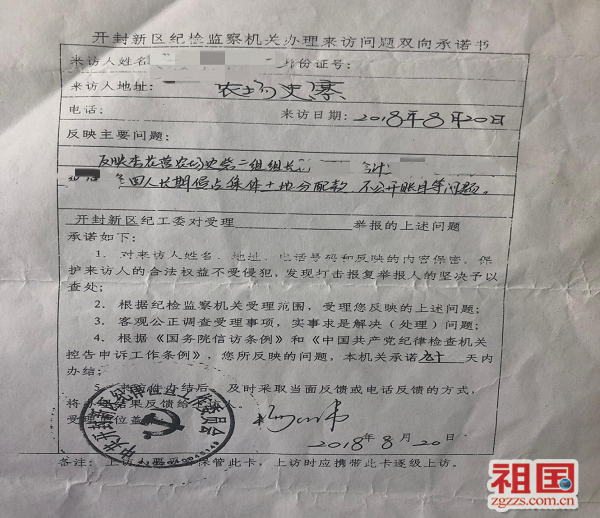 开封新区纪检监察机关办理来访问题双向承诺书
来访人姓名 身份证号：
来访人地址： 农场史寨
电话： 来访日期：2018年8月20日
反映主要问题：
反映杏花营农场史寨二组组长 会计
等四人长期侵占集体土地分配款，不公开账目等问题。
开封新区纪工委对受理 举报的上述问题
承诺如下：
1．对来访人姓名、地址、电话号码和反映的内容保密。保
护来访人的合法权益不受侵犯，发现打击报复举报人的坚决予以
查处；
2．根据纪检监察机关受理范围，受理您反映的上述问题；
3．客观公正调查受理事项，实事求是解决（处理）问题；
4．根据《国务院信访条例》和《中国共产党纪律检查机关
控告申诉工作条例》，您所反映的问题，本机关承诺 九十 天内
办结；
5．来访件办结后，及时采取当面反馈或电话反馈的方式，
将办理结果反馈给来访人。
受理单位盖章
中共开封新区纪律检查工作委员会
2018年8月20日
备注：上访人要 保管此卡，上访时应携带此卡逐级上访。
祖国
zgzzs.com.cn